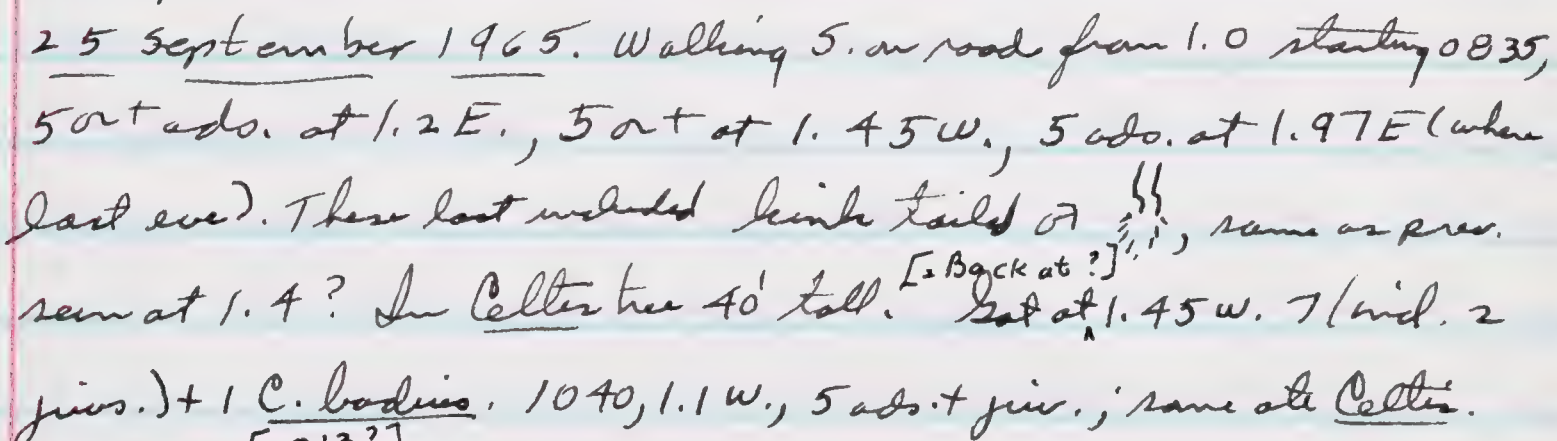 25 September 1965. Walking S. on road from 1.0 starting 0835,
5 or + ads. at 1.2 E., 5 or + at 1.45 W., 5 ads. at 1.97 E (where
last eve). These last included kink tailed ♂, same as prev.
[= Back at ?]
seen at 1.4? In Celtis tree 40' tall. at 1.45 W. 7 (incl. 2
juvs.) + 1 C. badius. 1040, 1.1 W., 5 ads. + juv.; some ate Celtis.